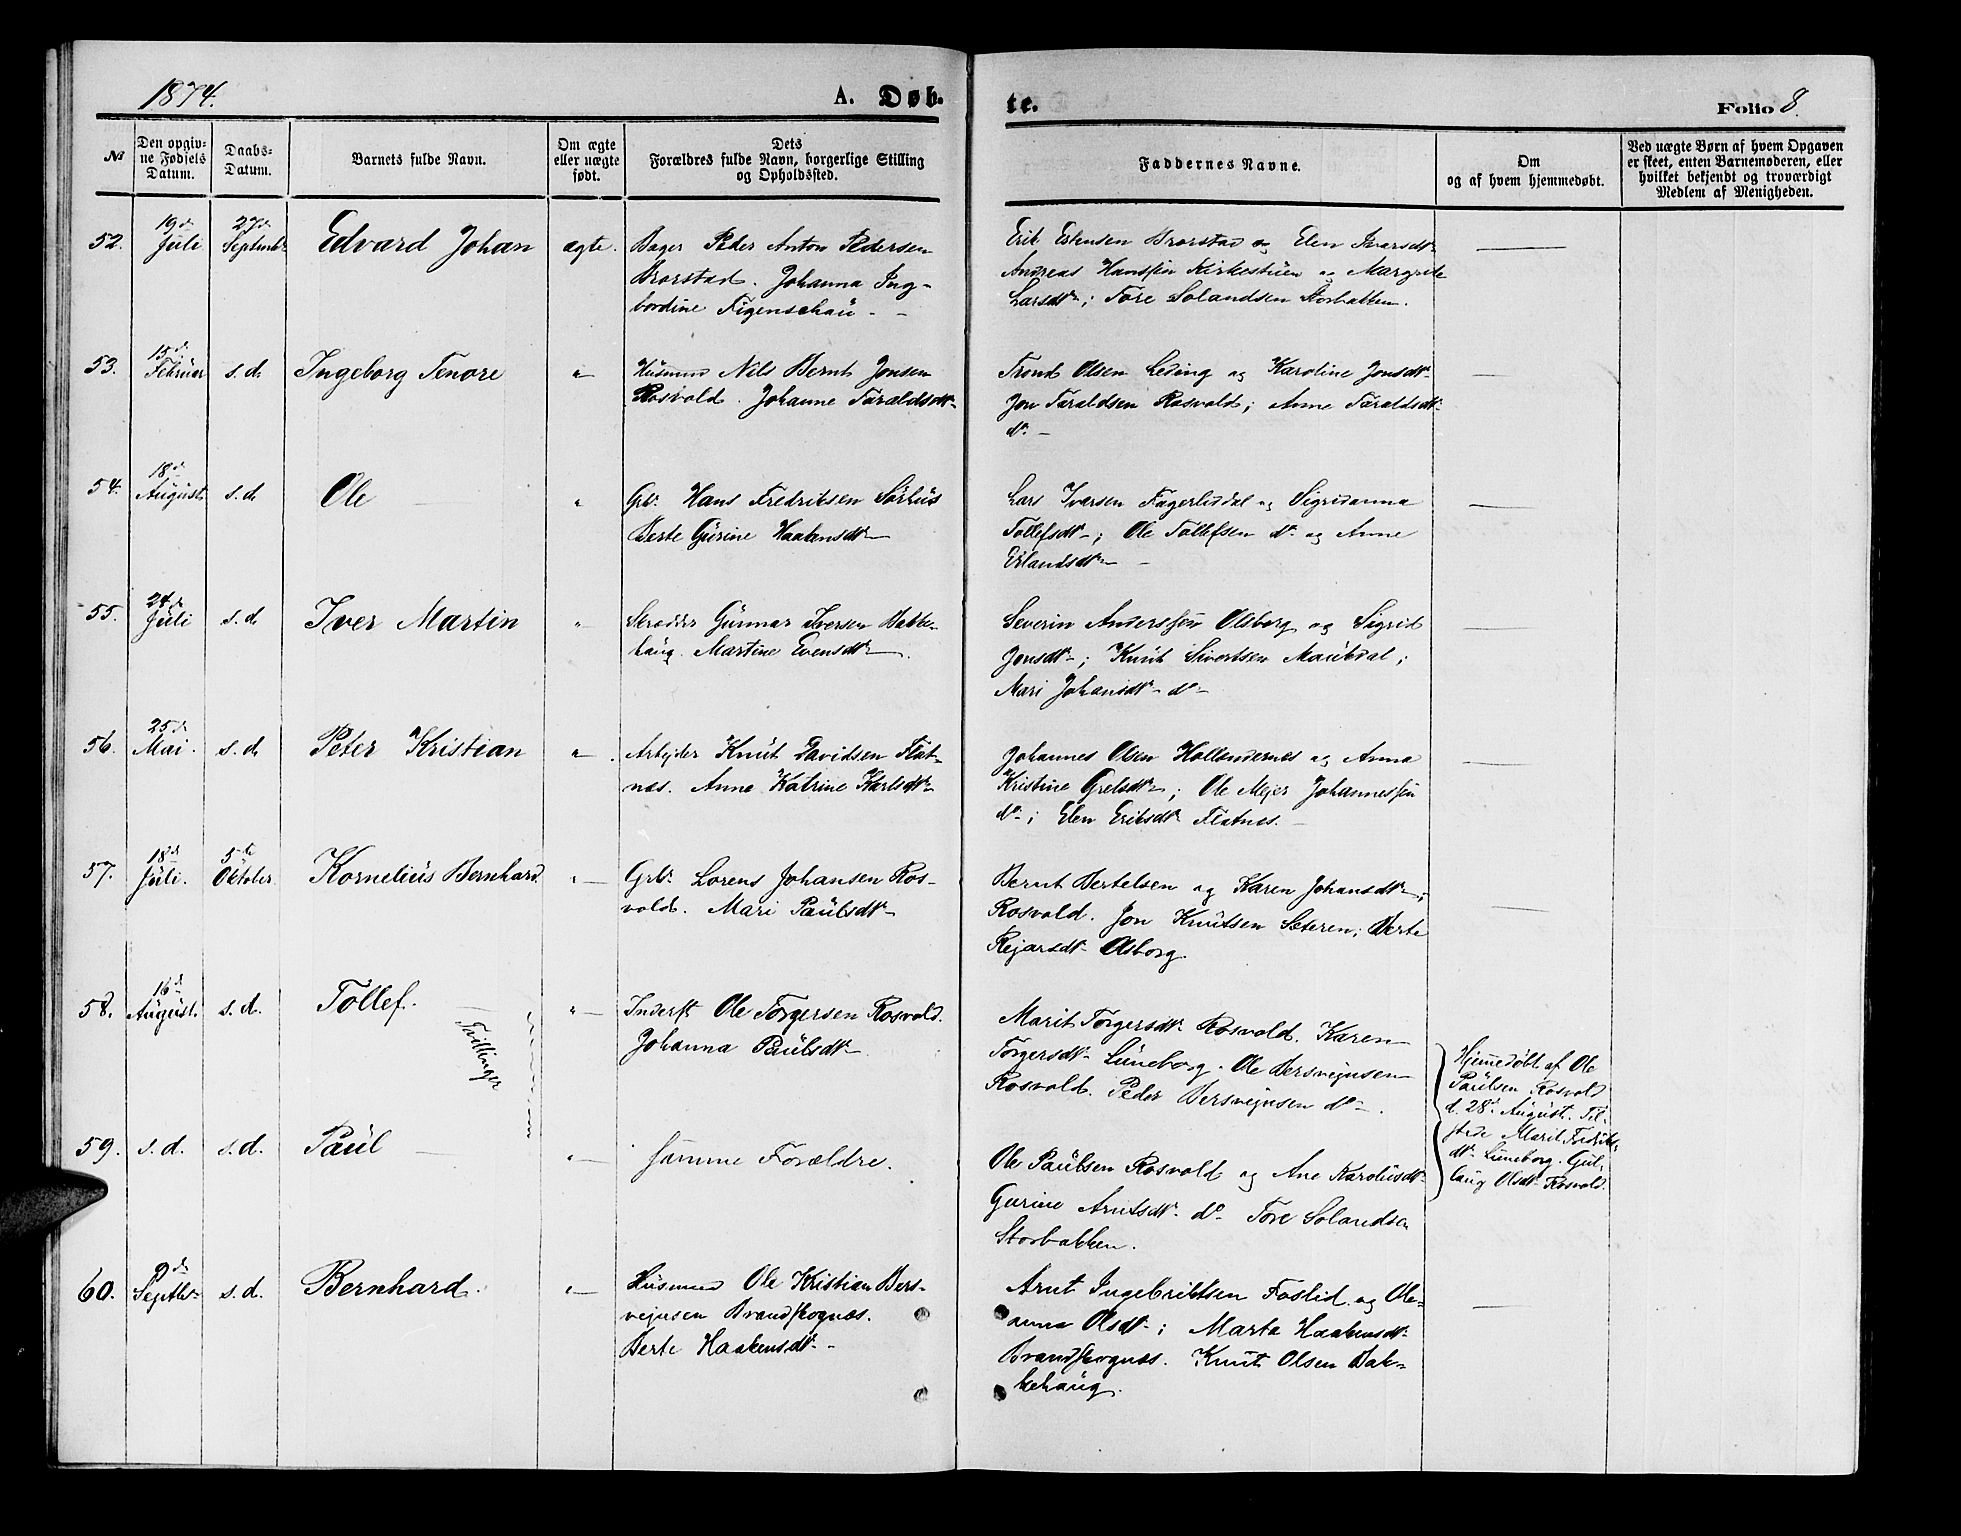 1874.
A. Døb-
te.
Folio 8.
№
Den opgiv-
ne Fødsels
Datum.
Daabs-
Datum.
Barnets fulde Navn.
Om ægte
eller uægte
født.
Dets
Forældres fulde Navn, borgerlige Stilling
og Opholdssted.
Faddernes Navne.
Om
og af hvem hjemmedøbt.
Ved uægte Børn af hvem Opgaven
er skeet, enten Barnemoderen, eller
hvilket bekjendt og troværdigt
Medlem af Menigheden.
52.
19d
Juli
27d
Septembr
Edvard Johan
ægte.
Bager Peder Anton Pedersen
Brorstad. Johanna Ing-
bordine Figenschau -
Erik Brorstad og Elen Ivarsdtr
Andreas Hanssen Kirkestuen og Margrete
Larsdtr; Tore Solandsen Storbakken.
53.
15d
Februar
s.d.
Ingeborg Tenore
"
Husmand Nils Bernt Jonsen
Rosvold. Johanne Taraldsdtr
Trond Olsen Leding og Karoline Jonsdtr
Jon Taraldsen Rosvold; Anne Taraldsdtr
do -
54.
18d
August
s.d.
Ole
"
Grbr. Hans Fredriksen Sørhus
Berte Gurine Haakensdtr
Lars Iversen Fagerliddal og Sigridanna
Tollefsdtr; Ole Tollefsen do og Anne
Erlandsdtr -
55.
24d
Juli
s.d.
Iver Martin
"
Skrædder Gunnar Iversen Bakke-
haug. Martine Evensdtr.
Severin Anderssen Olsborg og Sigrid
Jonsdtr; Knut Sivertsen Maukdal;
Mari Johansdtr do
56.
25d
Mai.
s.d.
Peter Kristian
"
Arbejder Knut Davidsen Flat-
næs. Anne Katrine Karlsdtr
Johannes Olsen Hollendernes og Anna
Kristine Grelsdtr; Ole Mejer Johannessen
do; Elen Eriksdtr Flatnes.
57.
18d
Juli.
5te
Oktober
Kornelius Bernhard
"
Grbr. Lorens Johansen Ros-
vold. Mari Paulsdtr
Bernt Bertelsen og Karen Johansdtr;
Rosvold. Jon Knutsen Seteren; Berte
Rejarsdtr Olsborg.
58.
16d
August.
s.d.
Tollef.
Tvillinger
"
Inderst Ole Torgersen Rosvold.
Johanna Paulsdtr
Marit Torgersdtr Rosvold. Karen
Torgersdtr Luneborg. Ole Bersvejnsen
Rosvold. Peder Bersvejnsen do.
Hjemedøbt af Ole
Paulsen Rosvold
d. 28d August. Til-
stede Marit Fredriks-
dtr Luneborg. Gul-
laug Olsdtr Rosvold.
59.
s.d.
s.d.
Paul
"
samme Forældre.
Ole Paulsen Rosvold og Ane Karolusdtr
Gurine Arntsdtr do Tore Solandsen
Storbakken.
60.
9d
Septbr
s.d.
Bernhard.
"
Husmand Ole Kristian Bers-
vejnsen Brandskognæs.
Berte Haakensdtr -
Arnt Ingebriktsen Foslid og Ole-
anna Olsdtr; Marta Haakensdtr
Brandskognæs. Knut Olsen Bak-
kehaug.